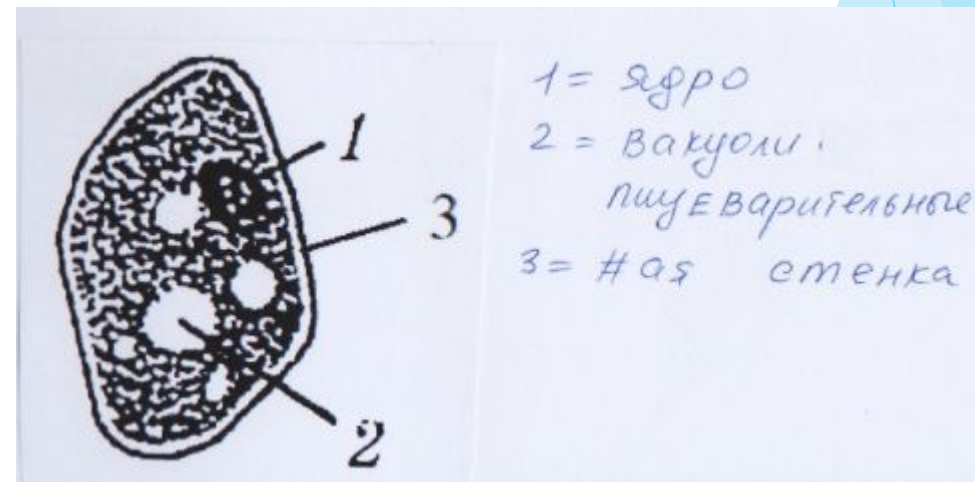 1
3
2
1 = ядро
2 = Вакуоли.
пищЕварительные
3 = # ая стенка